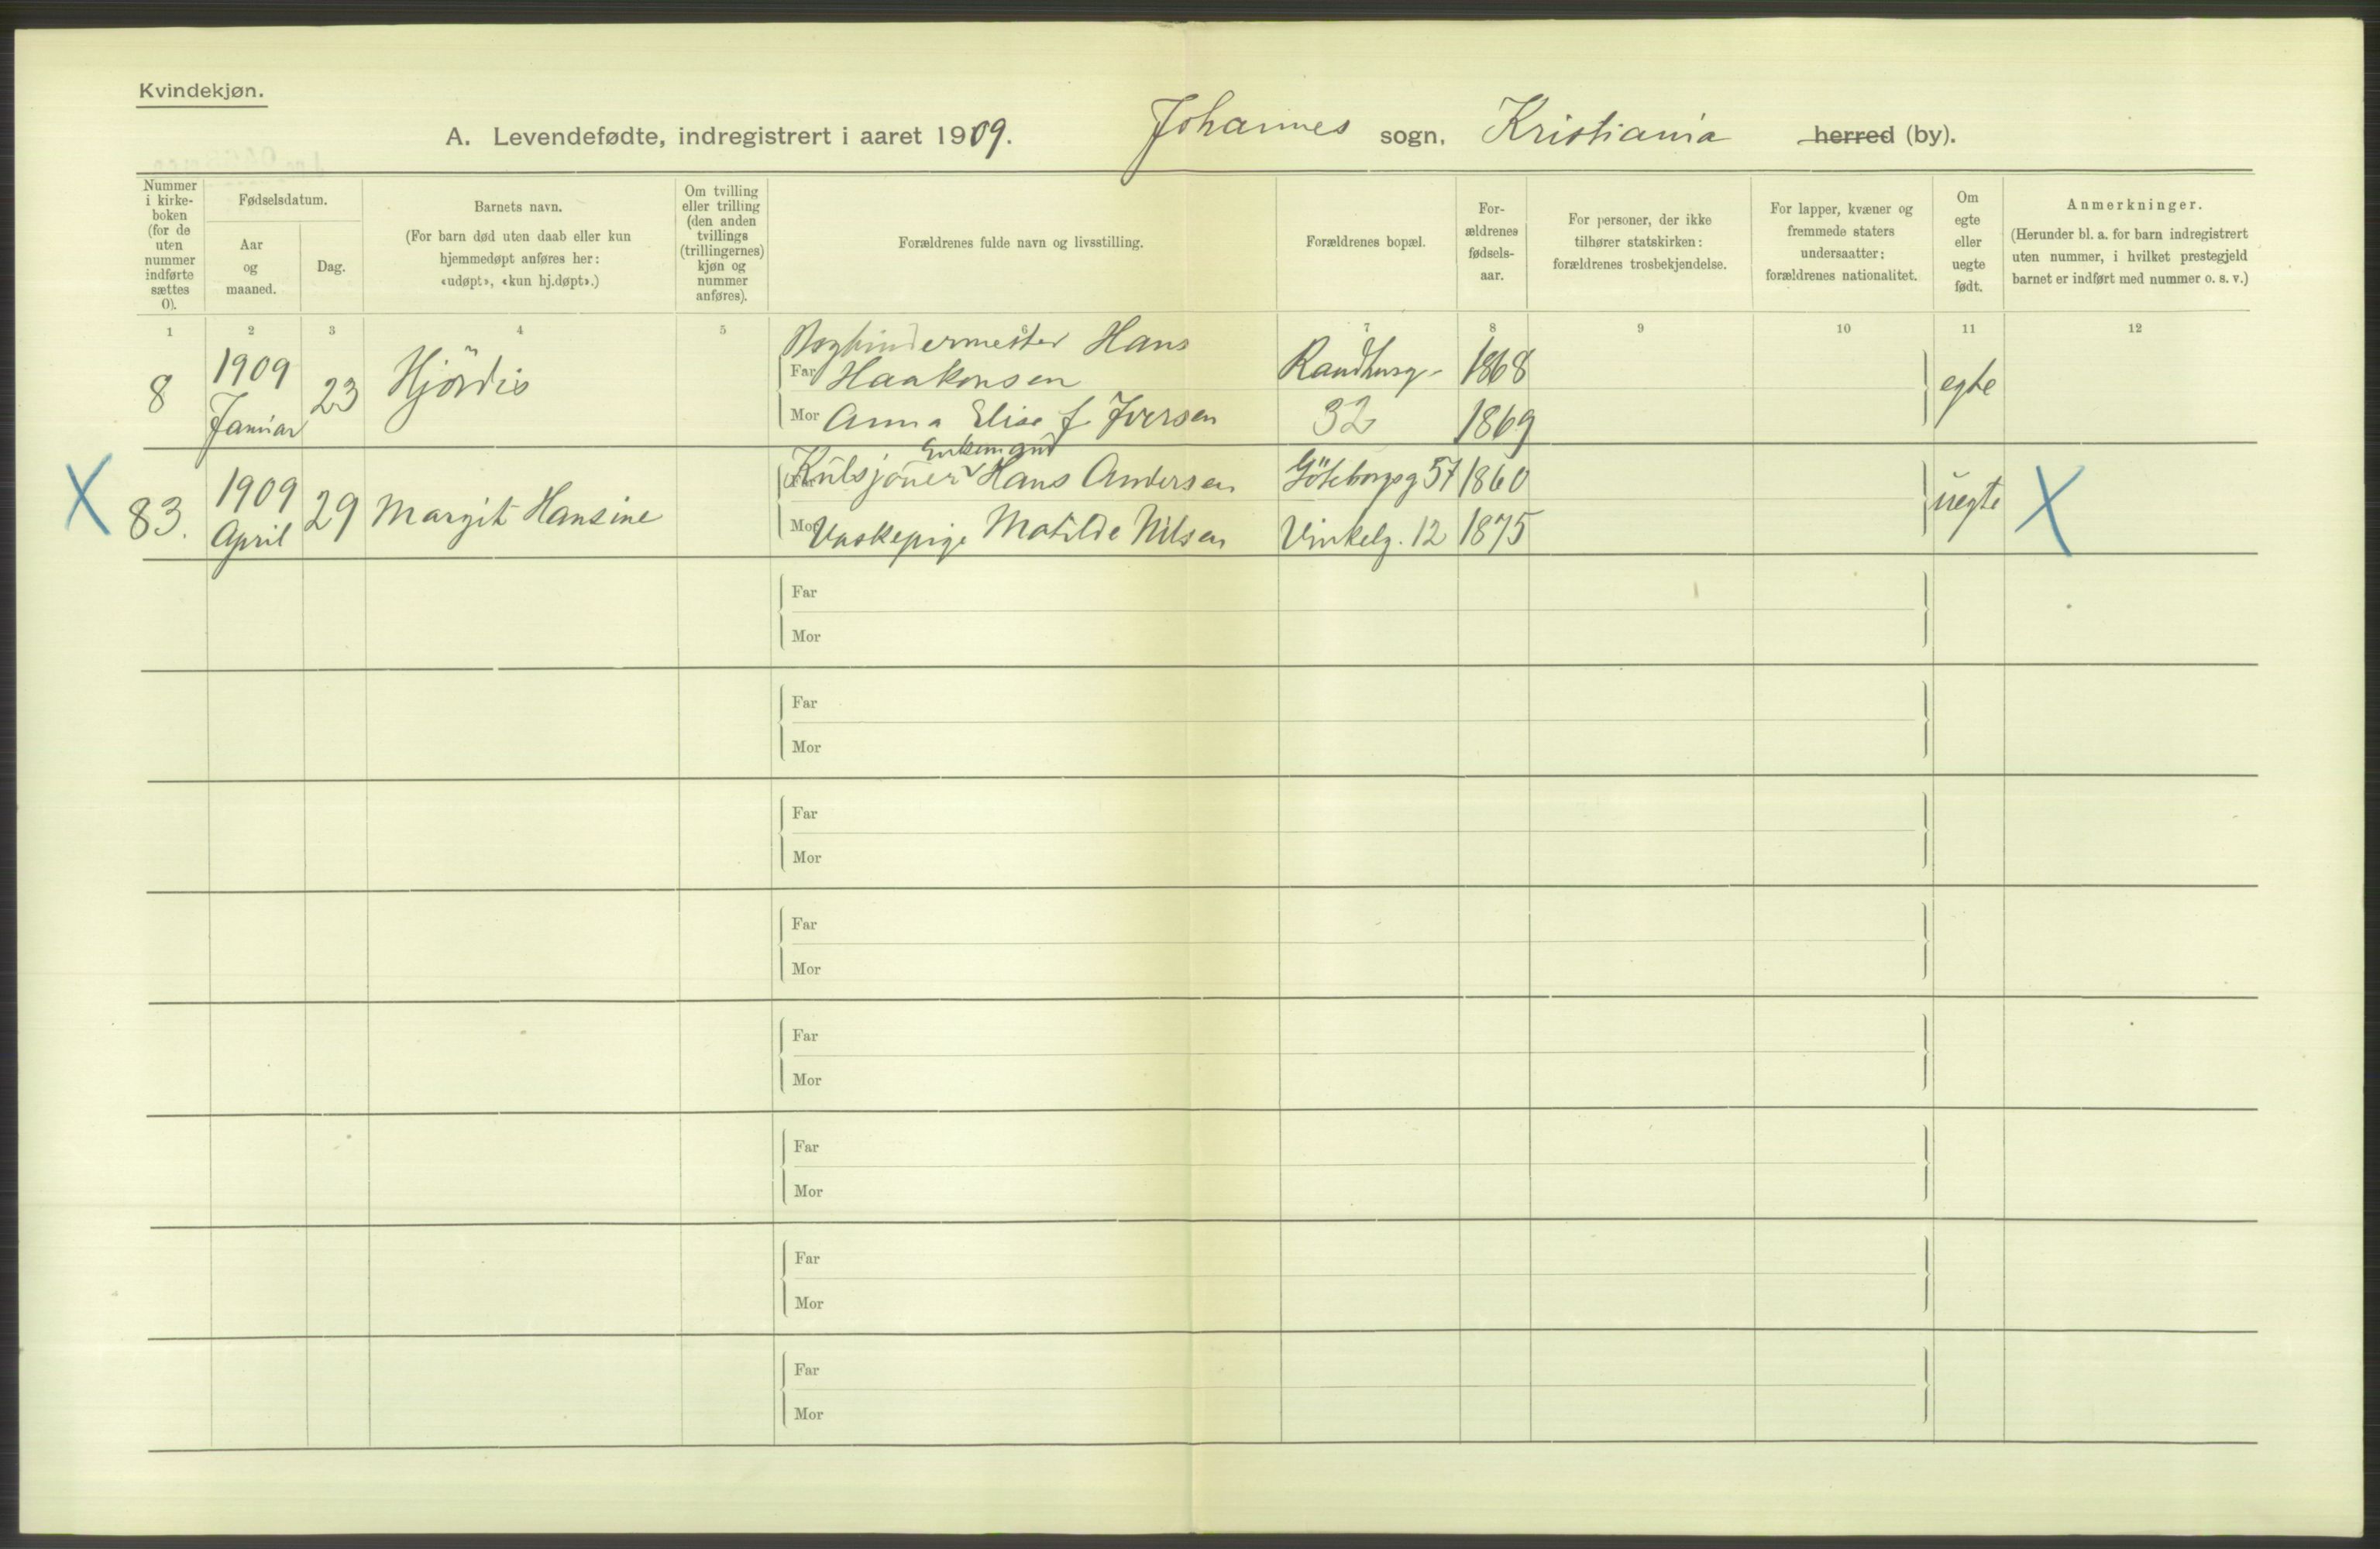 Kvindekjøn.
A. Levendefødte, indregistrert i aaret 1909. Johannes sogn, Kristiania herred (by).
Nummer i kirke- boken (for de uten nummer indførte sættes 0).
Fødselsdatum.
Aar og maaned.
Dag.
Barnets navn.
(For barn død uten daab eller kun hjemmedøpt anføres her: «udøpt», «kun hj.døpt».)
Om tvilling eller trilling (den anden tvillings (trillingernes) kjøn og nummer anføres).
Forældrenes fulde navn og livsstilling.
Forældrenes bopæl.
For- ældrenes fødsels- aar.
For personer, der ikke tilhører statskirken: forældrenes trosbekjendelse.
For lapper, kvæner og fremmede staters undersaatter: forældrenes nationalitet.
Om egte eller uegte født.
Anmerkninger.
(Herunder bl. a. for barn indregistrert uten nummer, i hvilket prestegjeld barnet er indført med nummer o. s. v.)
1 2 3 4 5 6 7 8 9 10 11 12
8 1909 Januar 23 Hjördis
Bogbindermester Hans
Far Haakonsen Randhusg- 1868
Mor Anna Elise f. Iversen 32 1869
egte
X 83. 1909 April 29 Margit Hansine
Enkemand
Far Kulsjouer Hans Andersen Göteborgsg 57 1860
Mor Vaskepige Matilde Nilsen Vinkelg. 12 1875
uegte X
Far
Mor
Far
Mor
Far
Mor
Far
Mor
Far
Mor
Far
Mor
Far
Mor
Far
Mor